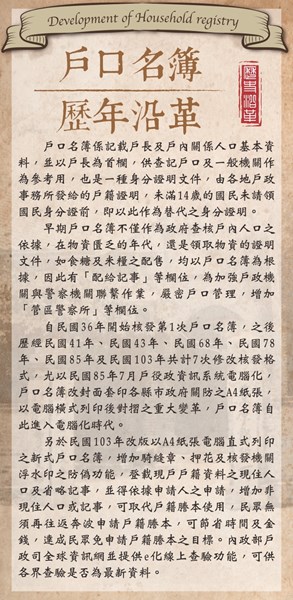 Development of Household registry
戶口名簿
歷年沿革
歷史沿革
戶口名簿係記載戶長及戶內關係人口基本資
料，並以戶長為首欄，供查記戶口及一般機關作
為參考用，也是一種身分證明文件，由各地戶政
事務所發給的戶籍證明，未滿14歲的國民未請領
國民身分證前，即以此作為替代之身分證明。
早期戶口名簿不僅作為政府查核戶內人口之
依據，在物資匱乏的年代，還是領取物資的證明
文件，如食糖及米糧之配售，均以戶口名簿為根
據，因此有「配給記事」等欄位，為加強戶政機
關與警察機關聯繫作業，嚴密戶口管理，增加
「管區警察所」等欄位。
自民國36年開始核發第1次戶口名簿，之後
歷經民國41年、民國43年、民國68年、民國78
年、民國85年及民國103年共計7次修改核發格
式，尤以民國85年7月戶役政資訊系統電腦化，
戶口名簿改封面套印各縣市政府關防之A4紙張，
以電腦橫式列印後對摺之重大變革，戶口名簿自
此進入電腦化時代。
另於民國103年改版以A4紙張電腦直式列印
之新式戶口名簿，增加騎縫章、押花及核發機關
浮水印之防偽功能，登載現戶戶籍資料之現住人
口及省略記事，並得依據申請人之申請，增加非
現住人口或記事，可取代戶籍謄本使用，民眾無
須再往返奔波申請戶籍謄本，可節省時間及金
錢，達成民眾免申請戶籍謄本之目標。內政部戶
政司全球資訊網並提供e化線上查驗功能，可供
各界查驗是否為最新資料。